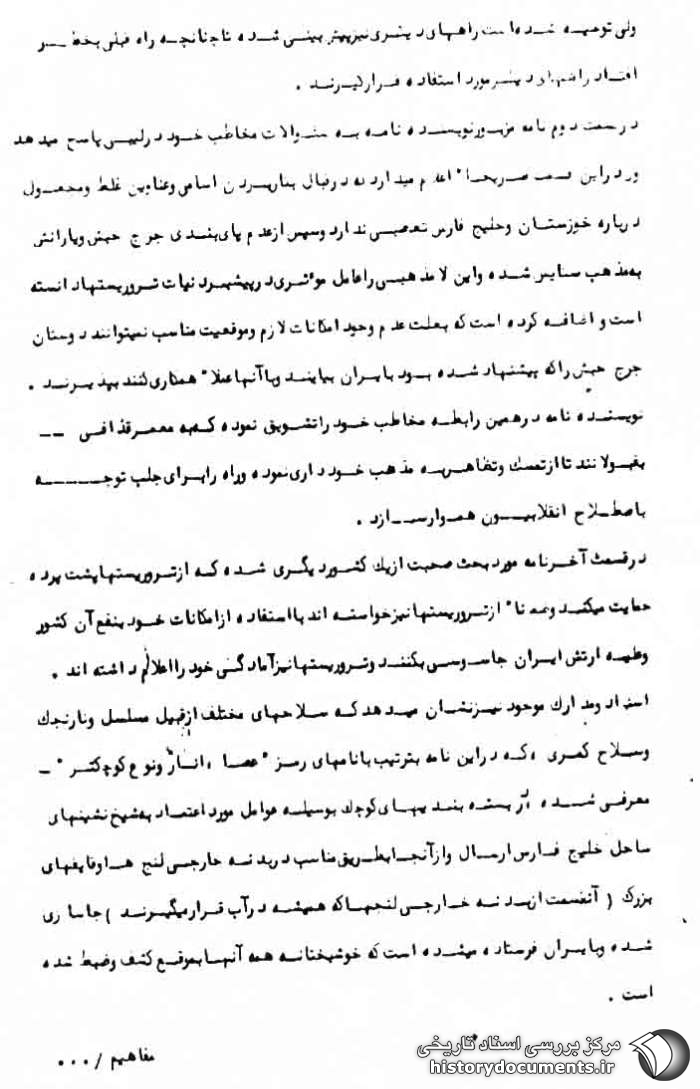 ولی توصیه شده است راههای دیگری نیز پیش بینی شده تا چنانچه راه قبلی بخطر
افتاد راههای دیگر مورد استفاده قرار گیرند .
در قسمت دوم نامه مزبور نویسنده نامه به سئوالات مخاطب خود در پاسخ میدهد
و در این قسمت صریحا" اعلام میدارد که در قبال بنا بردن اسامی و عناوین غلط و مجعول
درباره خوزستان و خلیج فارس تعصبی ندارد و سپس از عدم پای بندی جرج حبش و یارانش
به مذهب ستایش شده و این لا مذهبی را عامل موثری در پیشبرد نیات تروریستها دانسته
است و اضافه کرده است که بعلت عدم وجود امکانات لازم و موقعیت مناسب نمیتوانند دوستان
جرج حبش را که پیشنهاد شده بود بایران بیایند و با آنها عملا" همکاری کنند بپذیرند .
نویسنده نامه در همین رابطه مخاطب خود را تشویق نموده که به معمر قذافی --
بقبولانند تا از تمسک و تظاهر به مذهب خودداری نموده و راه را برای جلب توجه
باصطلاح انقلابیون هموار سازد .
در قسمت آخر نامه مورد بحث صحبت از یک کشور دیگری شده که از تروریستها پشت پرده
حمایت میکند و ضمنا" از تروریستها نیز خواسته اند با استفاده از امکانات خود بنفع آن کشور
و علیه ارتش ایران جاسوسی بکنند و تروریستها نیز آمادگی خود را اعلام داشته اند .
اسناد و مدارک موجود نیز نشان میدهد که سلاحهای مختلف از قبیل مسلسل و نارنجک
و سلاح کمری ، که در این نامه بترتیب با نامهای رمز " عصا ، انار و نوع کوچکتر " -
معرفی شده ، در بسته بندیهای کوچک بوسیله عوامل مورد اعتماد به شیخ نشینهای
ساحل خلیج فارس ارسال و از آنجا بطریق مناسب در بدنه خارجی لنج ها و قایقهای
بزرگ ( آنقسمت از بدنه خارجی لنجها که همیشه در آب قرار میگیرند ) جاسازی
شده و بایران فرستاده میشده است که خوشبختانه همه آنها بموقع کشف و ضبط شده
است .
مفاهیم / ۰۰۰
مرکز بررسی اسناد تاریخی
historydocuments.ir